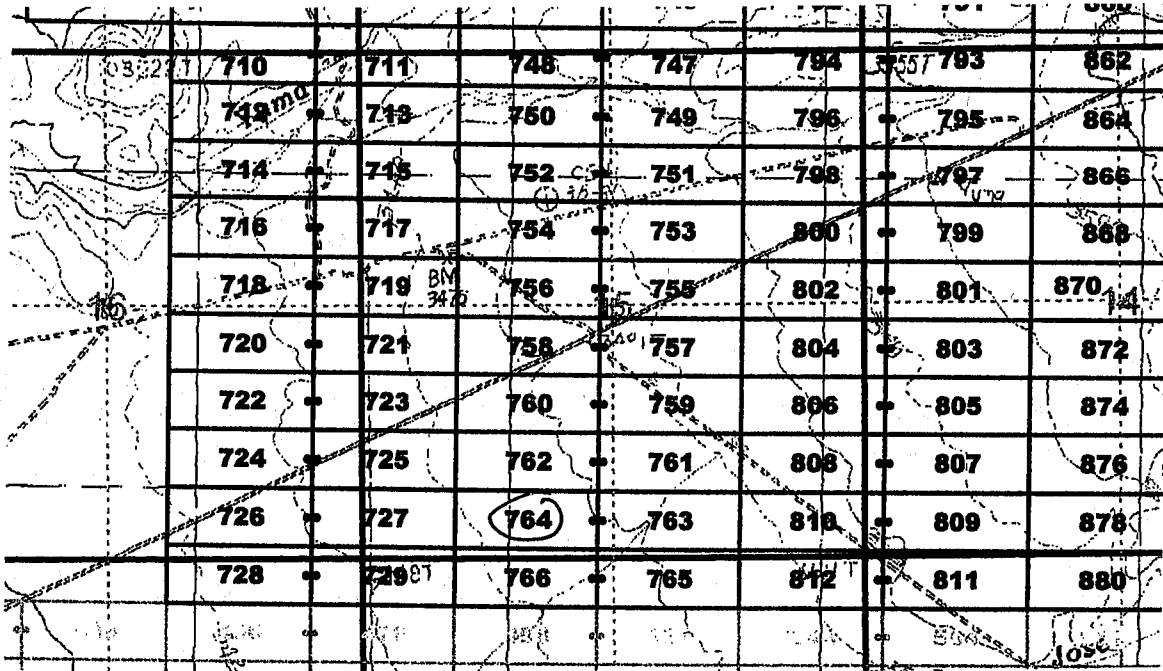 710 711 748 747 794 793 862
712 713 750 749 796 795 864
714 715 752 751 798 797 866
716 717 754 753 800 799 868
718 719 BM 756 755 802 801 870
16 15 14
720 721 758 757 804 803 872
722 723 760 759 806 805 874
724 725 762 761 808 807 876
726 727 764 763 810 809 878
728 729 766 765 812 811 880
Jose